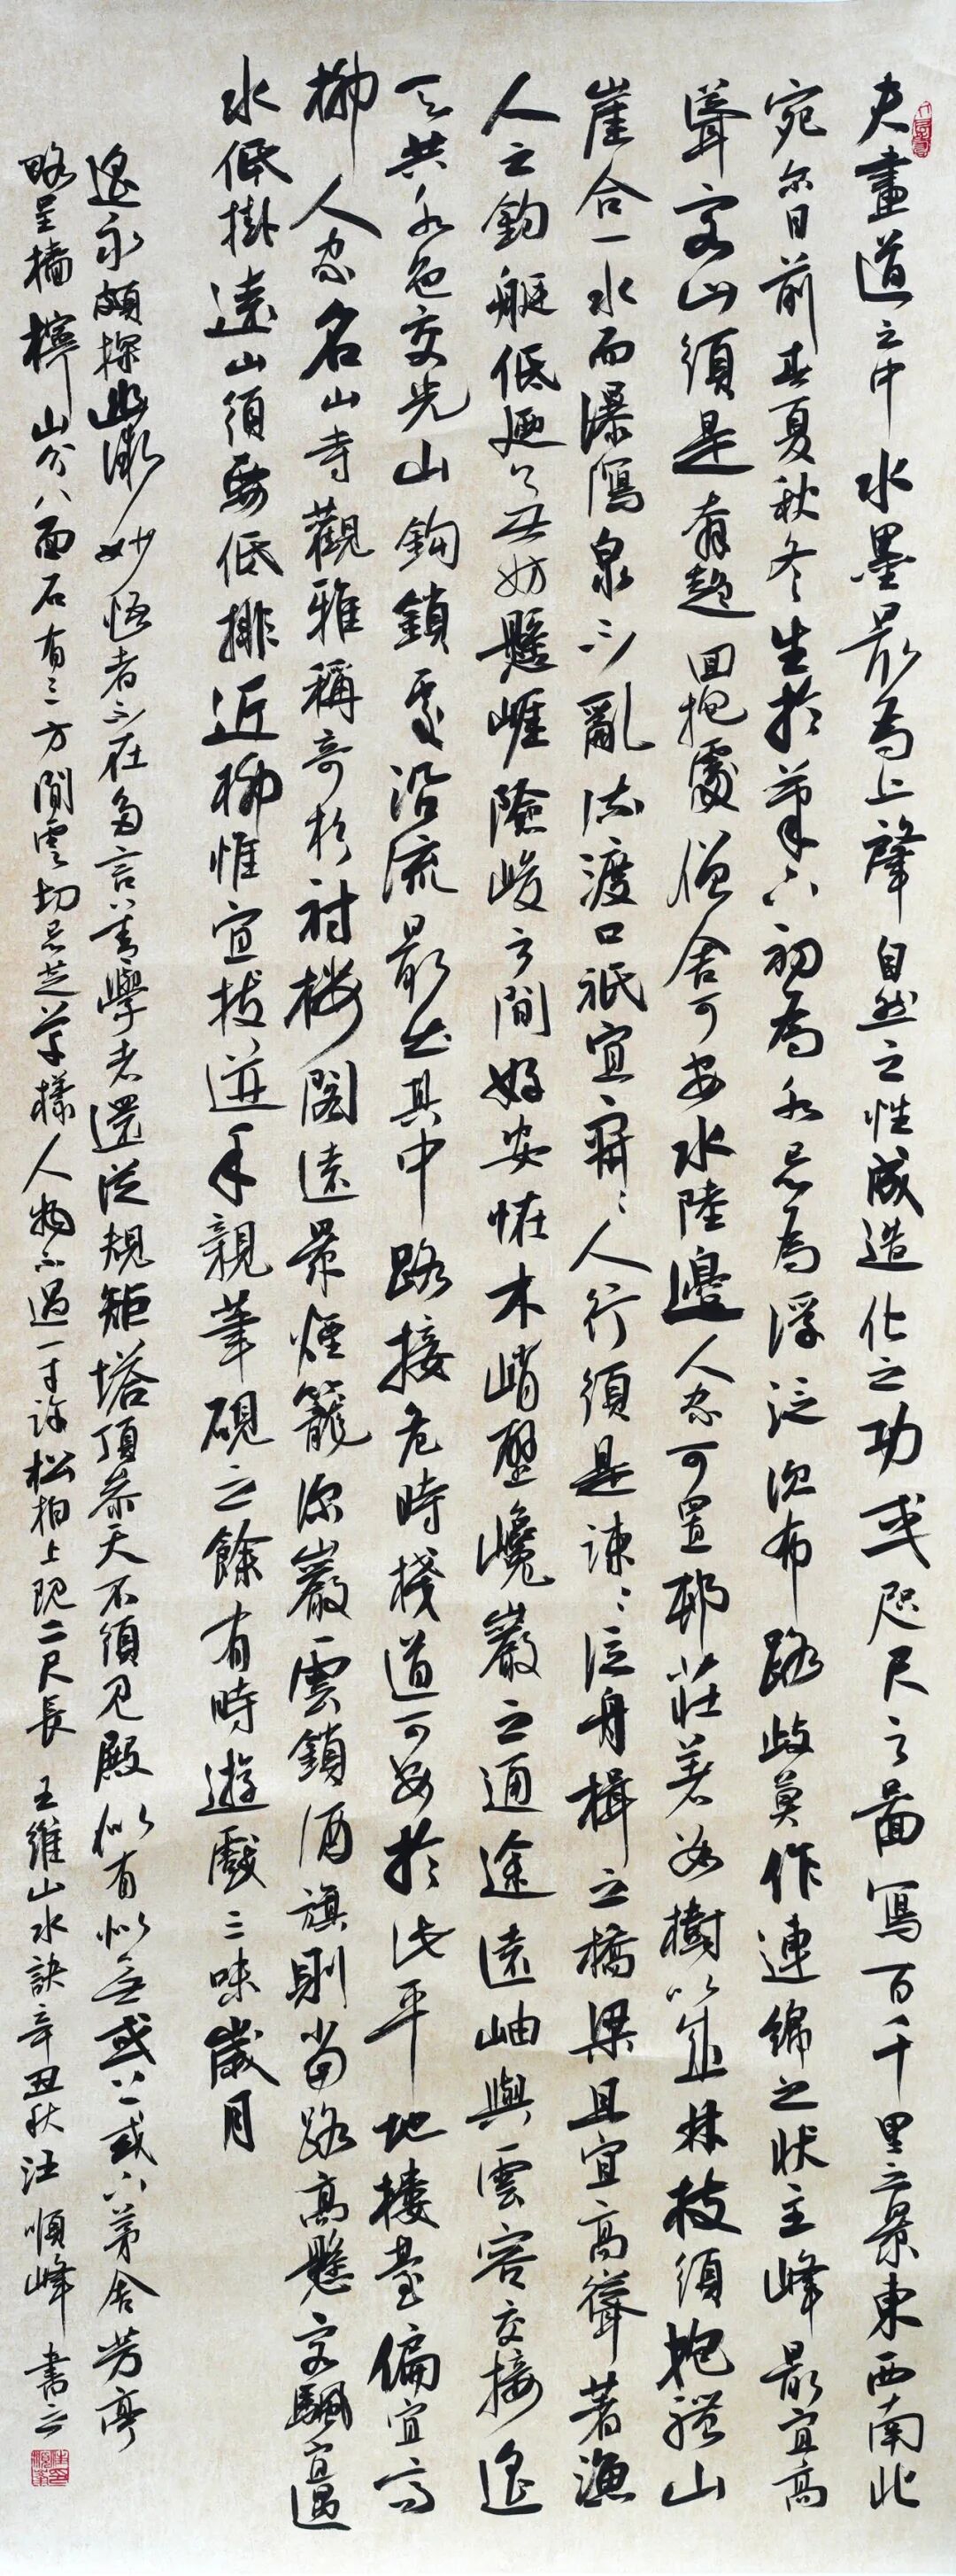 夫畫道之中水墨最為上肇自然之性成造化之功或咫尺之圖寫百千里之景東西南北
宛尔目前春夏秋冬生於筆下初為水忌為浮泛次布路歧莫作連綿之狀主峰最宜高
聳客山須是奔趨回抱處僧舍可安水陸邊人家可置邨莊著數樹以成林枝須抱體山
崖合一水而瀑瀉泉不亂流渡口祇宜寂寂人行須是疎疎泛舟楫之橋梁且宜高聳著漁
人之釣艇低廼無妨懸崖險峻之間好安怪木峭壁巉巖之通途遠岫與雲容交接遙
天共水色交光山鉤鎖處沿流最出其中路接危時棧道可安於此平地樓臺偏宜高
柳人家名山寺觀雅稱奇杉衬樓閣遠景煙籠深巖雲鎖酒旗則當路高懸客颿宜遇
水低掛遠山須要低排近柳惟宜拔迸手親筆硯之餘有時遊戲三昧歲月
遙永頗探幽微妙悟者不在多言善學者還從規矩塔頂參天不須見殿似有似無或上或下茅舍芳亭
略呈檣檸山分八面石有三方閒雲切忌芝草樣人物不過一寸許松柏上現二尺長 王維山水訣辛丑秋汪順峰書